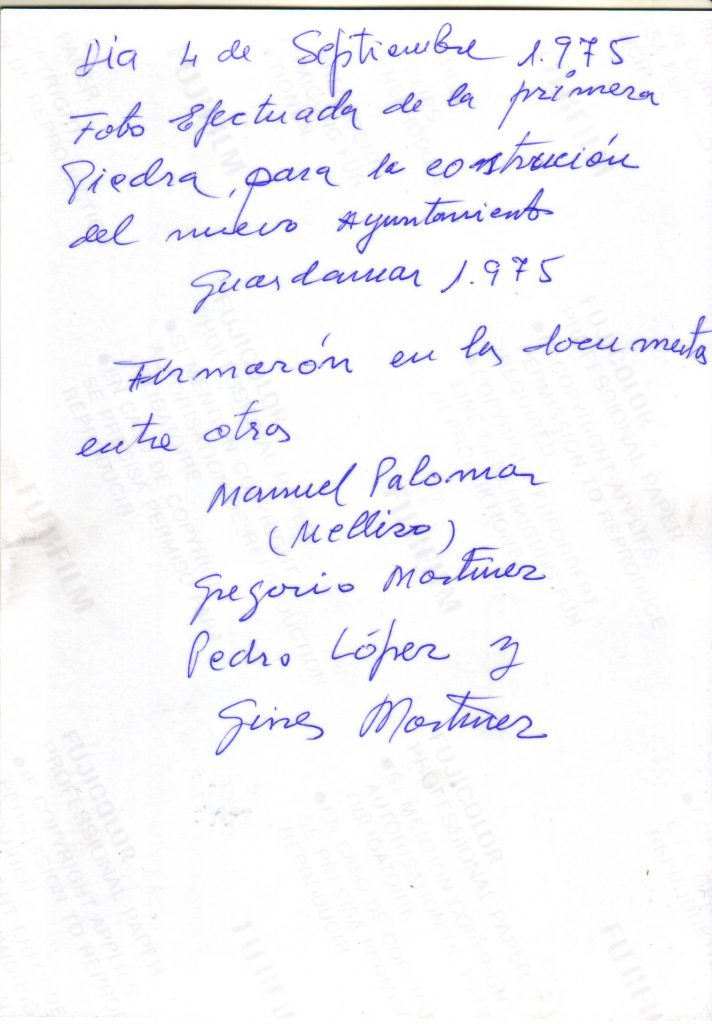 Dia 4 de Septiembre 1.975
Foto Efectuada de la primera
Piedra, para la costrución
del nuevo Ayuntamiento
Guardamar 1.975
Firmarón en los documentos
entre otros
Manuel Palomar
(Mellizo)
Gregorio Martinez
Pedro López y
Gines Martinez